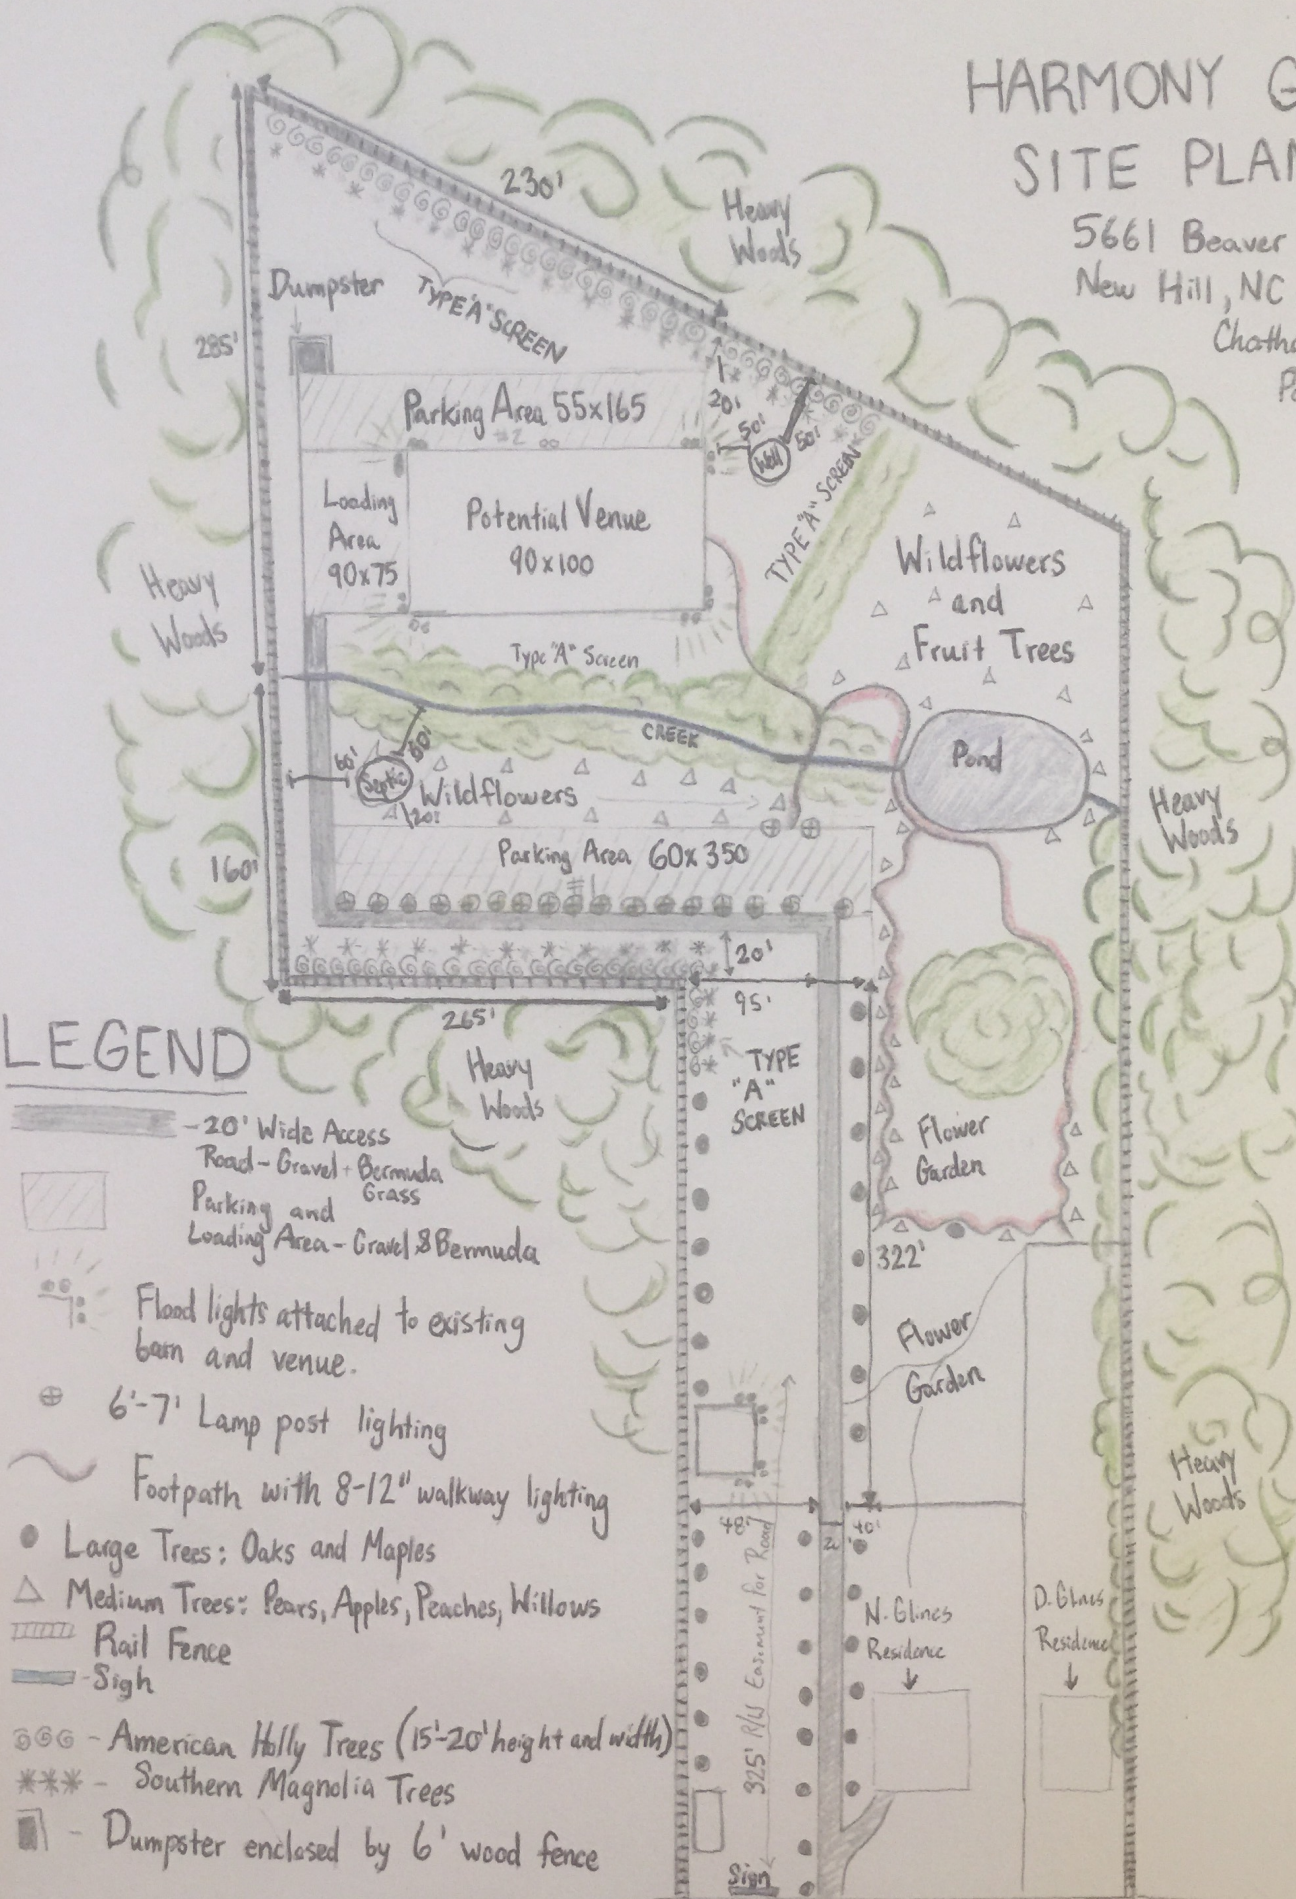 HARMONY G
SITE PLAN
5661 Beaver
New Hill, NC
Chatha
Pa
230'
Heavy
Woods
Dumpster
TYPE "A" SCREEN
285'
Parking Area 55x165
#2
20'
50'
50'
Well
TYPE "A" SCREEN
Loading
Area
90x75
Potential Venue
90x100
Wildflowers
and
Fruit Trees
Heavy
Woods
Type "A" Screen
CREEK
Pond
60'
50'
Septic
120'
Wildflowers
Heavy
Woods
160'
Parking Area 60x350
#1
20'
95'
265'
Heavy
Woods
TYPE
"A"
SCREEN
Flower
Garden
322'
Flower
Garden
Heavy
Woods
48'
40'
325' R/W Easement for Road
N. Glines
Residence
D. Glines
Residence
Sign
LEGEND
-20' Wide Access
Road-Gravel + Bermuda
Grass
Parking and
Loading Area - Gravel & Bermuda
Flood lights attached to existing
barn and venue.
6'-7' Lamp post lighting
Footpath with 8-12" walkway lighting
Large Trees: Oaks and Maples
Medium Trees: Pears, Apples, Peaches, Willows
Rail Fence
-Sigh
- American Holly Trees (15'-20' height and width)
- Southern Magnolia Trees
- Dumpster enclosed by 6' wood fence